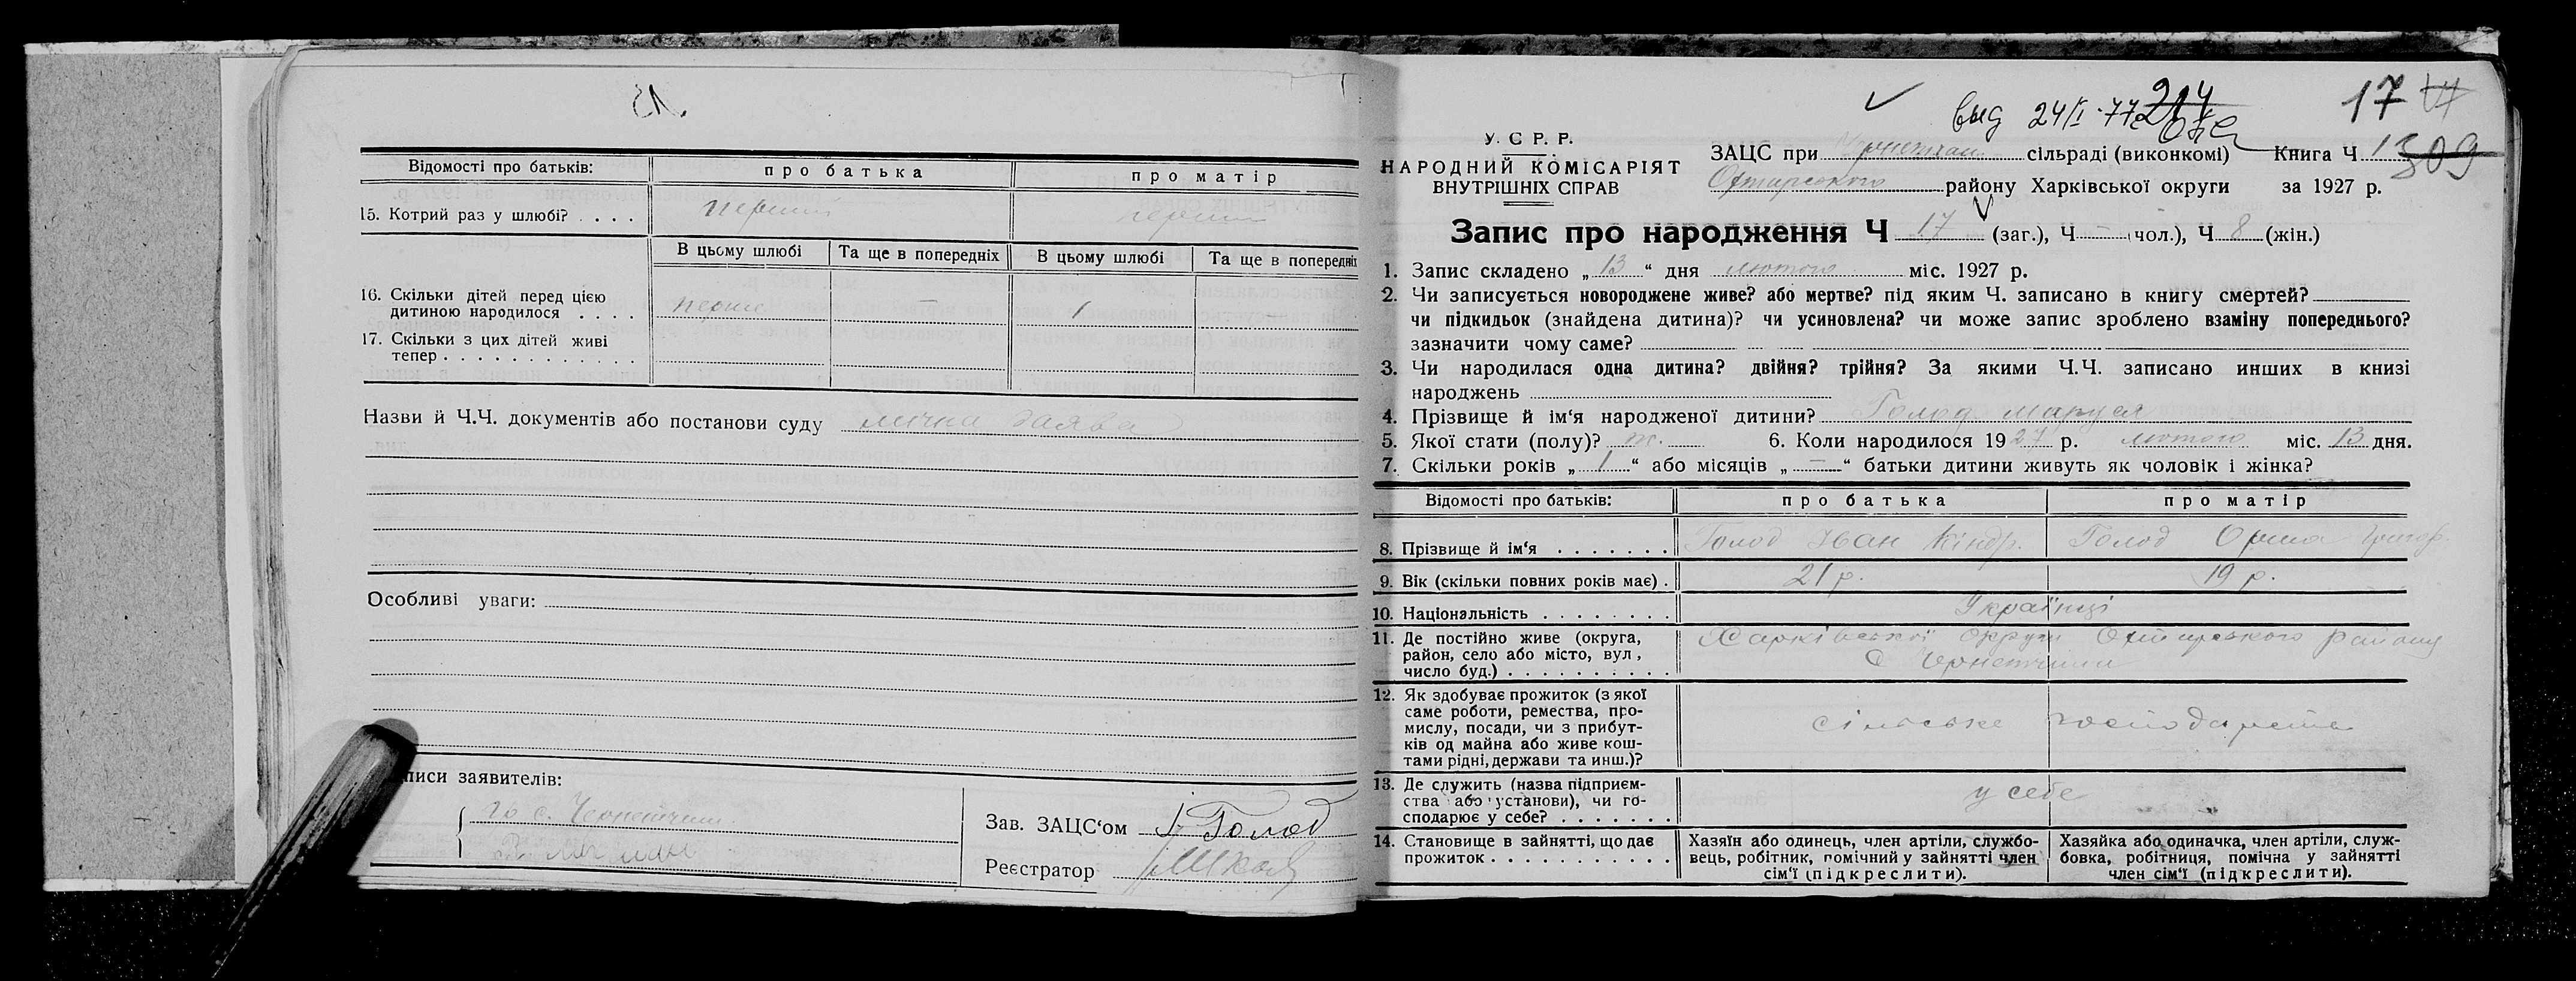 Відомості про батьків: про батька про матір
15. Котрий раз у шлюбі? . . . . перший перший
В цьому шлюбі Та ще в попередніх В цьому шлюбі Та ще в попередніх
16. Скільки дітей перед цією
дитиною народилося . . . . перше — 1 —
17. Скільки з цих дітей живі
тепер . . . . . . . . . . . .
Назви й Ч.Ч. документів або постанови суду лична заява
Особливі уваги:
писи заявителів:
с. Чернетчини
Зав. ЗАЦС‘ом Голод
Реєстратор
✓ выд 24/I-77г 214 17
У. С Р. Р.
НАРОДНИЙ КОМІСАРІЯТ
ВНУТРІШНІХ СПРАВ
ЗАЦС при сільраді (виконкомі) Книга Ч 1 309
Охтирського району Харківської округи за 1927 р.
Запис про народження Ч 17 (заг.), Ч — чол.), Ч 8 (жін.)
1. Запис складено „ 13 “ дня лютого міс. 1927 р.
2. Чи записується новороджене живе? або мертве? під яким Ч. записано в книгу смертей?
чи підкидьок (знайдена дитина)? чи усиновлена? чи може запис зроблено взаміну попереднього?
зазначити чому саме?
3. Чи народилася одна дитина? двійня? трійня? За якими Ч.Ч. записано инших в книзі
народжень
4. Прізвище й ім‘я народженої дитини? Голод Маруся
5. Якої стати (полу)? ж. 6. Коли народилося 1927 р. лютого міс. 13 дня.
7. Скільки років „ 1 “ або місяців „ — “ батьки дитини живуть як чоловік і жінка?
Відомості про батьків: про батька про матір
8. Прізвище й ім‘я . . . . . . . Голод Іван Кіндр. Голод Орина Григор.
9. Вік (скільки повних років має) . 21 р. 19 р.
10. Національність . . . . . . . . Українці
11. Де постійно живе (округа,
район, село або місто, вул,
число буд.) . . . . . . . . . .
Харківської округи Охтирського району
с Чернетчини
12. Як здобуває прожиток (з якої
саме роботи, ремества, про-
мислу, посади, чи з прибут-
ків од майна або живе кош-
тами рідні, держави та инш.)?
сільське господарство
13. Де служить (назва підприєм-
ства або установи), чи го-
сподарює у себе? . . . . . . .
у себе
14. Становище в зайнятті, що дає
прожиток . . . . . . . . . . .
Хазяїн або одинець, член артіли, службо-
вець, робітник, помічний у зайнятті член
сім‘ї (підкреслити).
Хазяйка або одиначка, член артіли, служ-
бовка, робітниця, помічна у зайнятті
член сім‘ї (підкреслити).